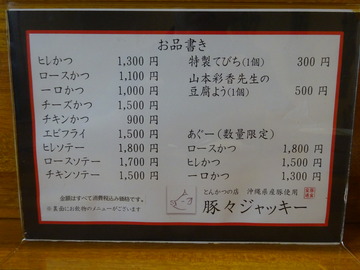 お品書き
ヒレかつ 1,300 円
ロースかつ 1,100 円
一口かつ 1,000 円
チーズかつ 1,500 円
チキンかつ 900 円
エビフライ 1,500 円
ヒレソテー 1,800 円
ロースソテー 1,700 円
チキンソテー 1,500 円
金額はすべて消費税込み価格です。
※裏面にお飲物のメニューがございます
特製てびち(1個) 300 円
山本彩香先生の
豆腐よう(1個) 500 円
あぐー(数量限定)
ロースかつ 1,800 円
ヒレかつ 1,500 円
一口かつ 1,300 円
とんかつの店 沖縄県産豚使用
豚々ジャッキー